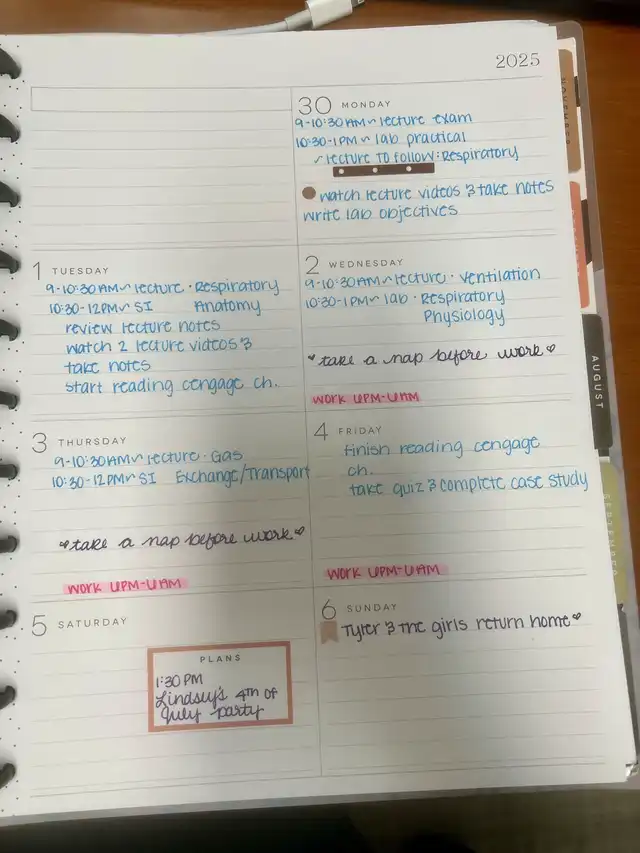 2025
30 MONDAY
9-10:30AM~lecture exam
10:30-1PM~lab practical
✓lecture TO follow: Respiratory
watch lecture videos & take notes
write lab objectives
1 TUESDAY
9-10:30AM~lecture · Respiratory
10:30-12PM~SI Anatomy
review lecture notes
watch 2 lecture videos &
take notes
start reading cengage ch.
2 WEDNESDAY
9-10:30AM~lecture · ventilation
10:30-1PM~lab · Respiratory
Physiology
♥take a nap before work♥
work 6PM-6AM
3 THURSDAY
9-10:30AM~lecture · Gas
10:30-12PM~SI Exchange/Transport
♥take a nap before work♥
work 6PM-6AM
4 FRIDAY
finish reading cengage
ch.
take quiz & complete case study
work 6PM-6AM
5 SATURDAY
PLANS
1:30PM
Lindsey's 4th of
July party
6 SUNDAY
Tyler & the girls return home♥
AUGUST
SEPTEMBER